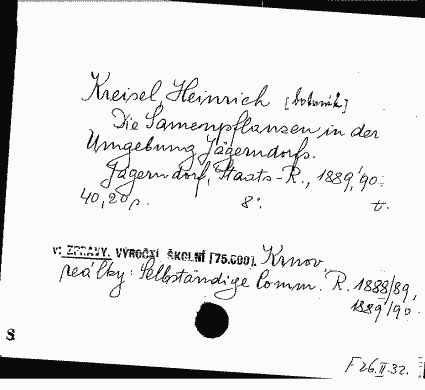 Kreisel, Heinrich [botanik]
Die Samenpflanzen in der
Umgebung Jägerndorfs.
Jägerndorf, Staats-R., 1889/90.
40, 20 p. 8°. t.
v: ZPRÁVY, VÝROČNÍ, ŠKOLNÍ [75.600]. Krnov
reálky: Selbständige Comm. R. 1888/89,
1889/90
S
F 26.II.32.